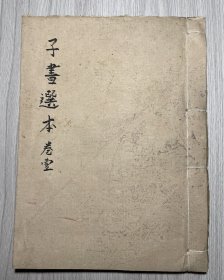 子書選本 卷壹